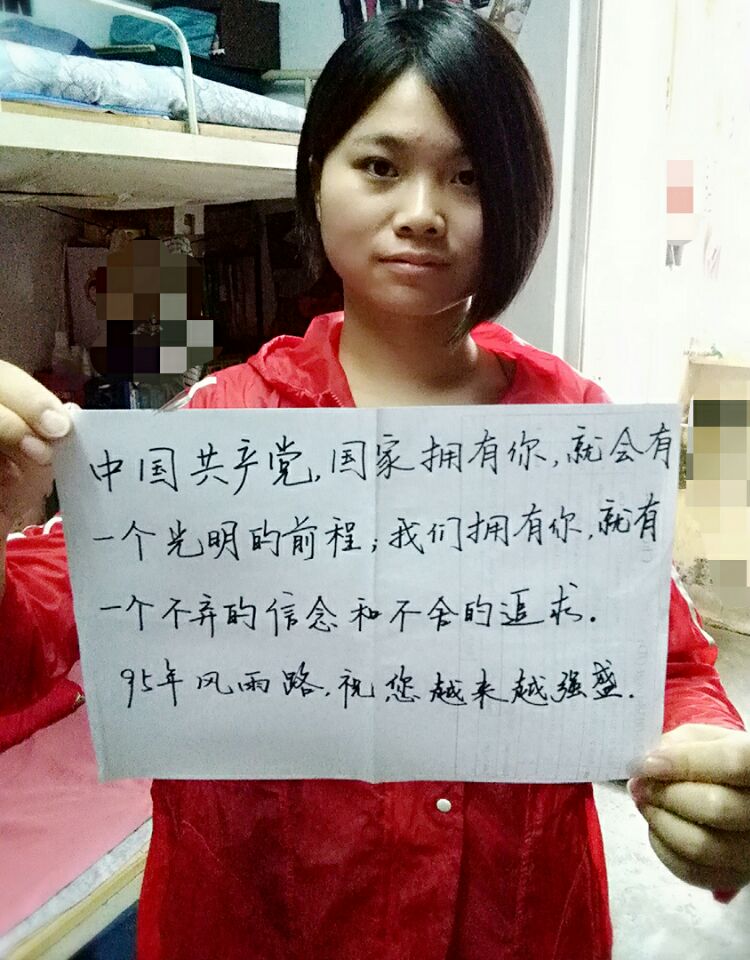 中国共产党,国家拥有你,就会有
一个光明的前程;我们拥有你,就有
一个不弃的信念和不舍的追求.
95年风雨路,祝您越来越强盛.